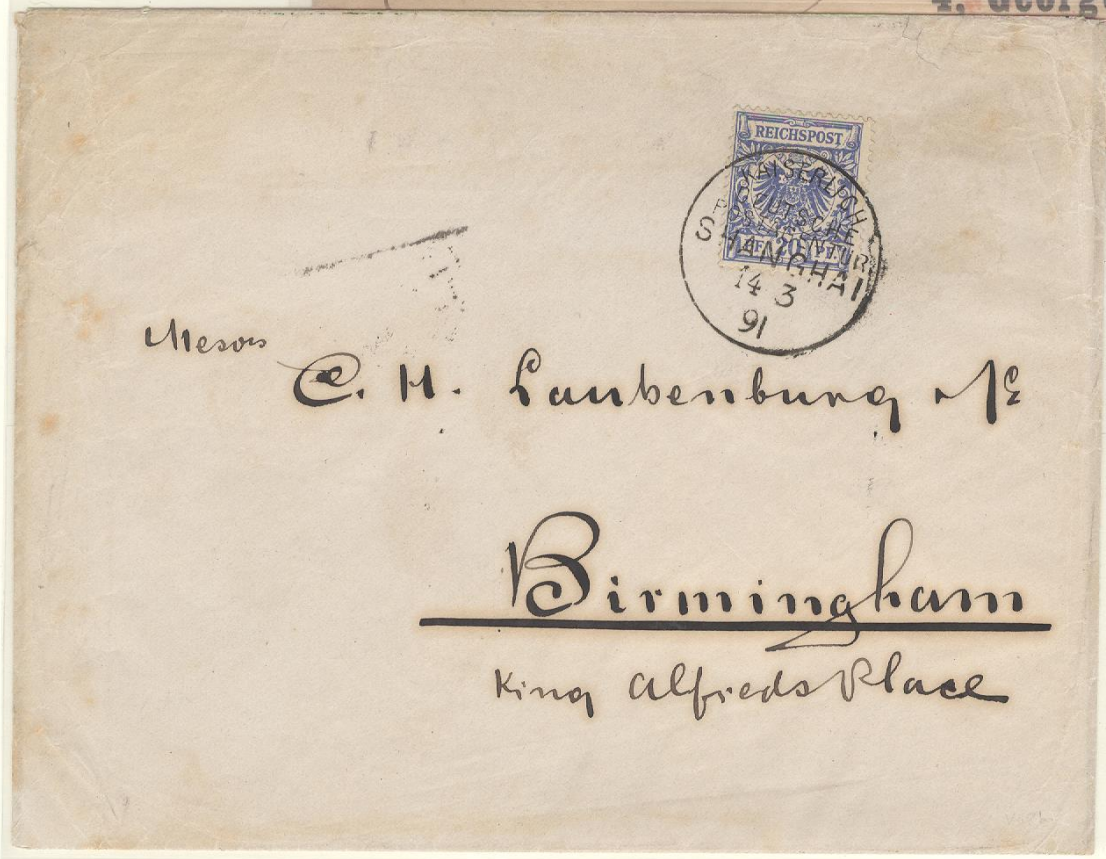 4, Georg
REICHSPOST
KAISERLICH
DEUTSCHE
POSTAGENTUR
SHANGHAI
14 3
91
PF. 20 PF.
Messrs
C. H. Laubenburg
Birmingham
King Alfreds Place